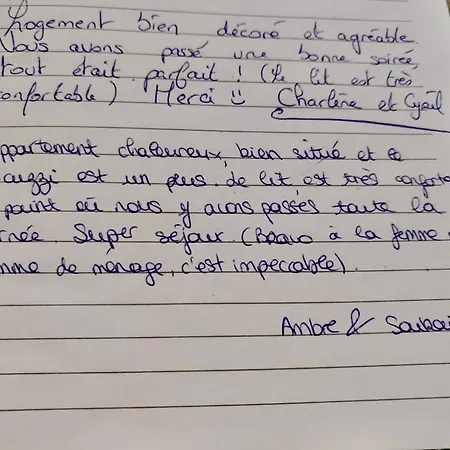 Logement bien décoré et agréable.
Nous avons passé une bonne soirée,
tout était parfait ! (Le lit est très
confortable) Merci :) Charlène et Cyril
ppartement chaleureux, bien situé et le
cuzzi est un plus. Le lit est très conforta
point où nous y avons passés toute la
rnée. Super séjour (Bravo à la femme
mme de ménage, c'est impeccable).
Ambre &